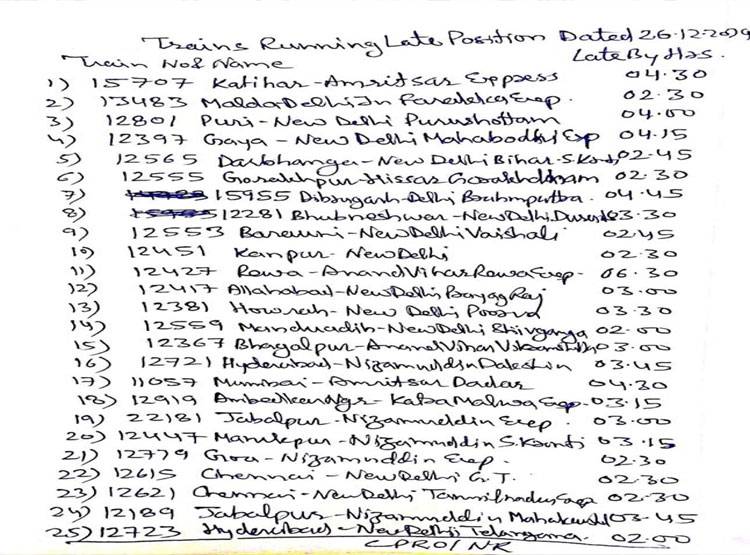 Trains Running Late Position Dated 26.12.2019
Train No& Name Late By Hrs.
1) 15707 Katihar-Amritsar Express 04.30
2) 13483 Malda-Delhi Jn Farakka Exp. 02.30
3) 12801 Puri-New Delhi Purushottam 04.00
4) 12397 Gaya-New Delhi Mahabodhi Exp 04.15
5) 12565 Darbhanga-New Delhi Bihar S.Kranti 02.45
6) 12555 Gorakhpur-Hissar Gorakhdham 02.30
7) 15955 Dibrugarh-Delhi Brahmputra. 04.45
8) 12281 Bhubneshwar-New Delhi Duronto 03.30
9) 12553 Barauni-New Delhi Vaishali 02.45
10) 12451 Kanpur-New Delhi 02.30
11) 12427 Rewa-Anand Vihar Rewa Exp- 06.30
12) 12417 Allahabad-New Delhi Prayag Raj 03.00
13) 12381 Howrah-New Delhi Poorva 03.30
14) 12559 Manduadih-New Delhi Shivganga 02.00
15) 12367 Bhagalpur-Anand Vihar 03.00
16) 12721 Hyderabad-Nizamuddin Dakshin 03.45
17) 11057 Mumbai-Amritsar Dadar 04.30
18) 12919 Ambedkarngr-Katra Malwa Exp-03.15
19) 22181 Jabalpur-Nizamuddin Exp. 03.00
20) 12447 Manikpur-Nizamuddin S.Kranti 03.15
21) 12779 Goa-Nizamuddin Exp. 02.30
22) 12615 Chennai-New Delhi G.T. 02.30
23) 12621 Chennai-New Delhi Tamilnadu Exp 02.30
24) 12189 Jabalpur-Nizamuddin Mahakaushal 03.45
25) 12723 Hyderabad-New Delhi Telangana. 02.00
CPRO/NR